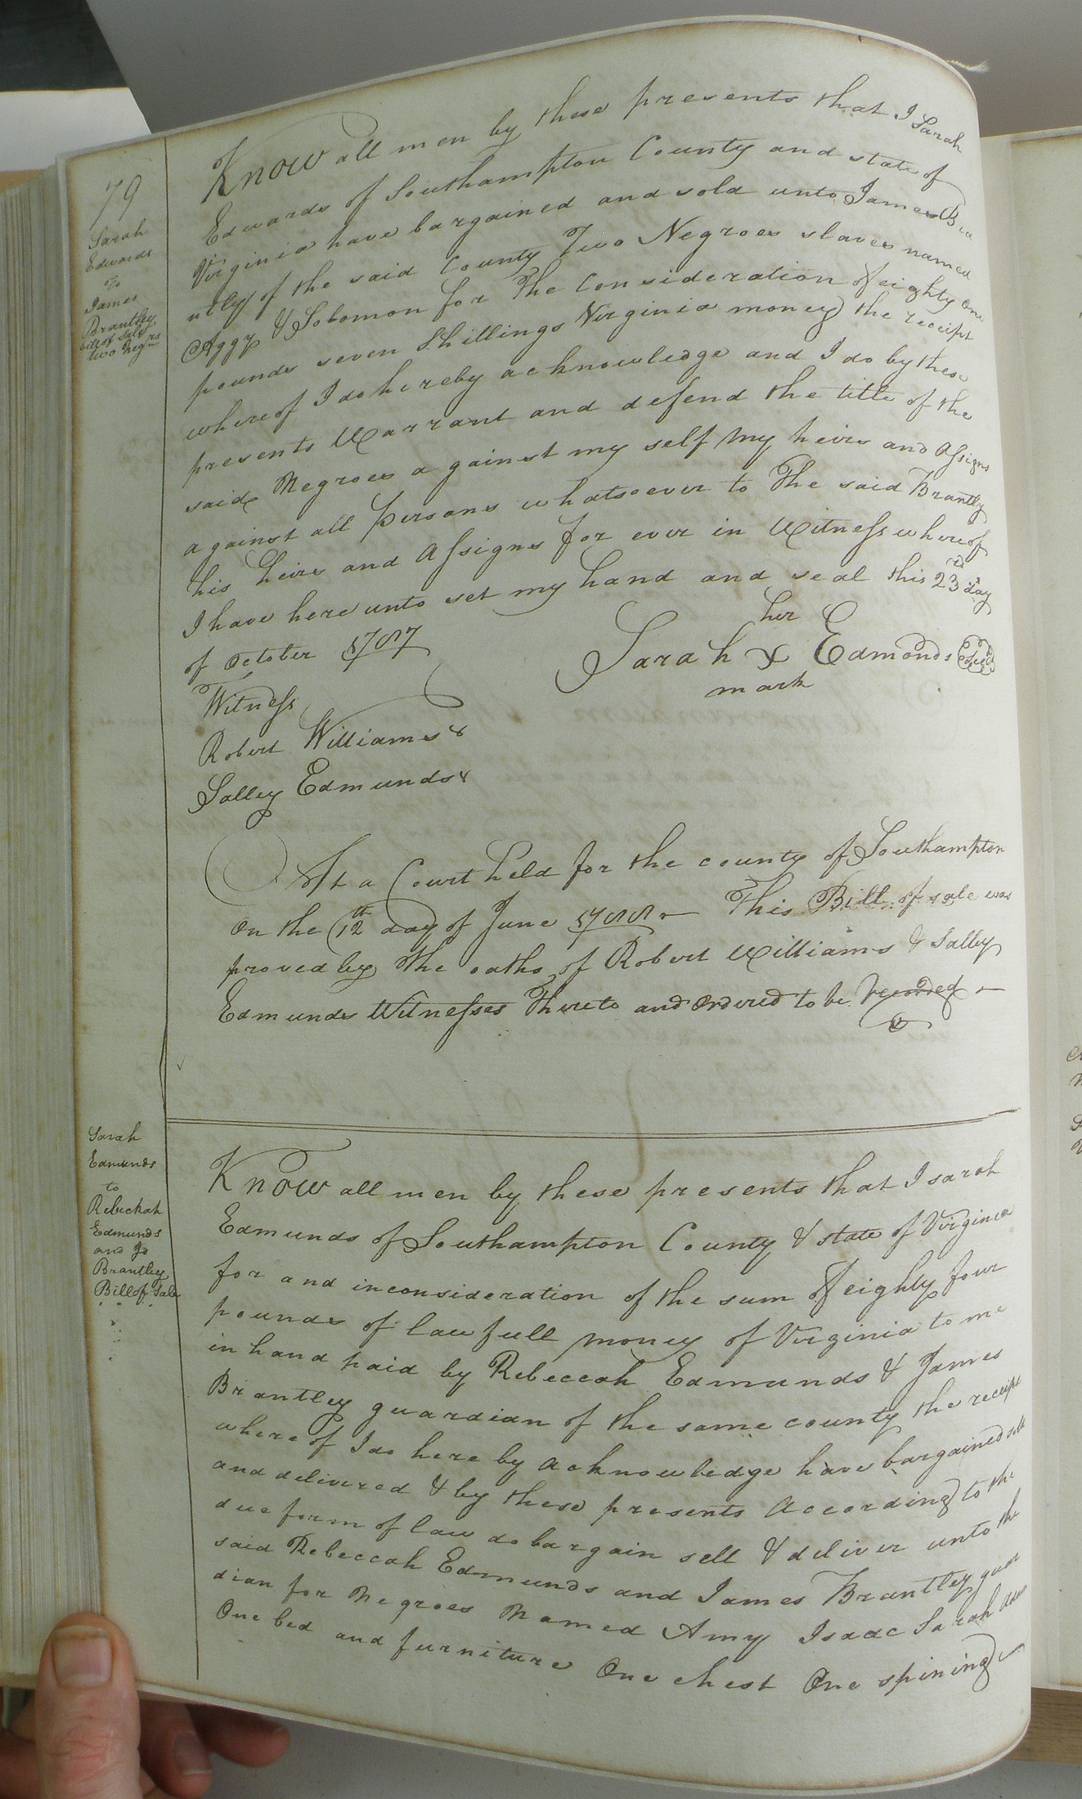 79
Sarah
Edwards
to
James
Brantley
bill of sale
two Negrs
Know all men by these presents that I Sarah
Edwards of Southampton County and state of
Virginia have bargained and sold unto James Bra
ntley of the said County Two Negroes slaves named
Aggy & Solomon for The Consideration of eighty one
pounds seven Shillings Virginia money the receipt
whereof I do hereby acknowledge and I do by these
presents Warrant and defend the title of the
said Negroes a gainst my self My heirs and Assigns
against all persons whatsoever to The said Brantly
his heirs and Assigns for ever in Witness whereof
I have here unto set my hand and seal this 23rd day
of October 1787
her
Sarah X Edmonds Seal
mark
Witness
Robert Williams
Salley Edmunds
At a Court held for the county of Southampton
On the 12th day of June 1788 This Bill of sale was
proved by the oaths of Robert Williams & Salley
Edmunds Witnesses Thereto and Ordered to be Recorded
Sarah
Edmunds
to
Rebeckah
Edmunds
and Js
Brantley
Bill of Sale
Know all men by these presents that I sarah
Edmunds of Southampton County & state of Virginia
for and inconsideration of the sum of eighty four
pounds of lawfull money of Virginia to me
in hand paid by Rebeccah Edmunds & James
Brantley guardian of the same county the receipt
whereof I do here by acknowledge have bargained sold
and delivered & by these presents According to the
due form of law do bargain sell & deliver unto the
said Rebeccah Edmunds and James Brantley guar
dian for Negroes Named Amy Isaac Sarah
One bed and furniture One chest One spining